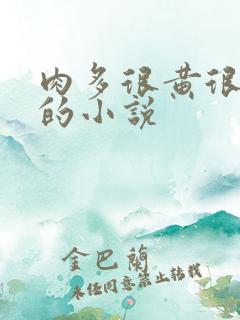 肉多很黄很
的小说
金巴兰
未经同意禁止转载